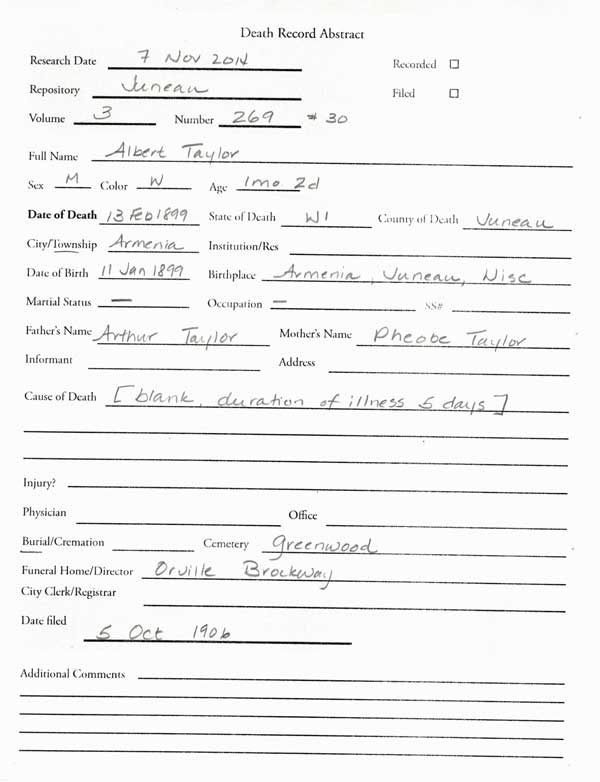 Death Record Abstract
Research Date 7 Nov 2014 Recorded ☐
Repository Juneau Filed ☐
Volume 3 Number 269 # 30
Full Name Albert Taylor
Sex M Color W Age 1mo 2d
Date of Death 13 Feb 1899 State of Death WI County of Death Juneau
City/Township Armenia Institution/Res
Date of Birth 11 Jan 1899 Birthplace Armenia, Juneau, Wisc
Martial Status — Occupation — SS#
Father's Name Arthur Taylor Mother's Name Pheobe Taylor
Informant Address
Cause of Death [blank, duration of illness 5 days]
Injury?
Physician Office
Burial/Cremation Cemetery Greenwood
Funeral Home/Director Orville Brockway
City Clerk/Registrar
Date filed 5 Oct 1906
Additional Comments